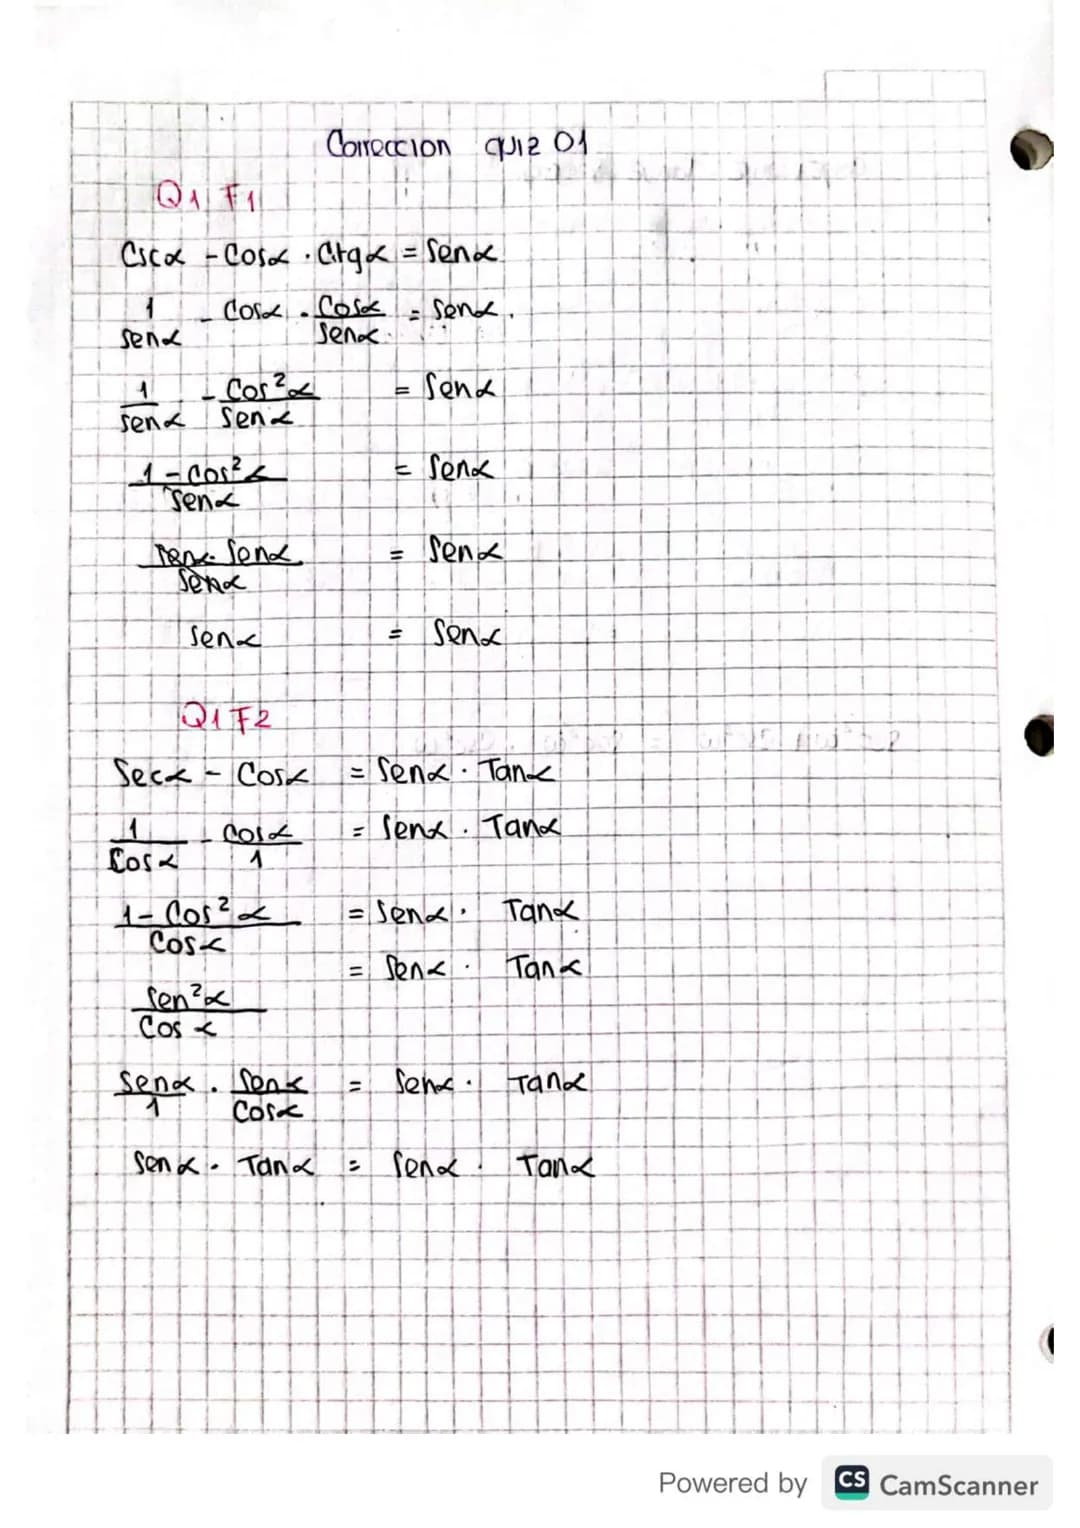 Correccion quiz 01
Q1 F1
Cscα - Cosα . Ctgα = Senα
1/senα - Cosα . Cosα/Senα = Senα.
1/senα - Cos²α/Senα = Senα
1-cos²α/Senα = Senα
Senα. Senα/Senα = Senα
Senα = Senα
Q1 F2
Secα - Cosα = Senα . Tanα
1/Cosα - Cosα/1 = Senα . Tanα
1- Cos²α/Cosα = Senα . Tanα
= Senα . Tanα
Sen²α/Cos α
Senα/1 . Senα/Cosα = Senα . Tanα
Sen α . Tanα = Senα . Tanα
Powered by CS CamScanner